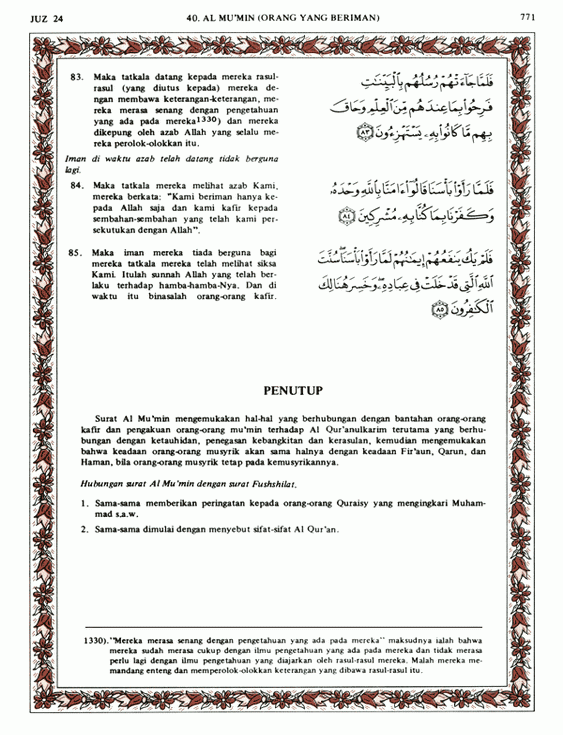 JUZ 24
40. AL MU'MIN (ORANG YANG BERIMAN)
771
83. Maka tatkala datang kepada mereka rasul-
rasul (yang diutus kepada) mereka de-
ngan membawa keterangan-keterangan, me-
reka merasa senang dengan pengetahuan
yang ada pada mereka1330) dan mereka
dikepung oleh azab Allah yang selalu me-
reka perolok-olokkan itu.
فَلَمَّا جَآءَتْهُمْ رُسُلُهُم بِالْبَيِّنَٰتِ
فَرِحُوا۟ بِمَا عِندَهُم مِّنَ الْعِلْمِ وَحَاقَ
بِهِم مَّا كَانُوا۟ بِهِۦ يَسْتَهْزِءُونَ ﴿٨٣﴾
Iman di waktu azab telah datang tidak berguna
lagi.
84. Maka tatkala mereka melihat azab Kami,
mereka berkata: "Kami beriman hanya ke-
pada Allah saja dan kami kafir kepada
sembahan-sembahan yang telah kami per-
sekutukan dengan Allah".
فَلَمَّا رَأَوْا۟ بَأْسَنَا قَالُوٓا۟ ءَامَنَّا بِاللَّهِ وَحْدَهُۥ
وَكَفَرْنَا بِمَا كُنَّا بِهِۦ مُشْرِكِينَ ﴿٨٤﴾
85. Maka iman mereka tiada berguna bagi
mereka tatkala mereka telah melihat siksa
Kami. Itulah sunnah Allah yang telah ber-
laku terhadap hamba-hamba-Nya. Dan di
waktu itu binasalah orang-orang kafir.
فَلَمْ يَكُ يَنفَعُهُمْ إِيمَٰنُهُمْ لَمَّا رَأَوْا۟ بَأْسَنَا ۖ سُنَّتَ
اللَّهِ الَّتِى قَدْ خَلَتْ فِى عِبَادِهِۦ ۖ وَخَسِرَ هُنَالِكَ
الْكَٰفِرُونَ ﴿٨٥﴾
PENUTUP
Surat Al Mu'min mengemukakan hal-hal yang berhubungan dengan bantahan orang-orang
kafir dan pengakuan orang-orang mu'min terhadap Al Qur'anulkarim terutama yang berhu-
bungan dengan ketauhidan, penegasan kebangkitan dan kerasulan, kemudian mengemukakan
bahwa keadaan orang-orang musyrik akan sama halnya dengan keadaan Fir'aun, Qarun, dan
Haman, bila orang-orang musyrik tetap pada kemusyrikannya.
Hubungan surat Al Mu'min dengan surat Fushshilat.
1. Sama-sama memberikan peringatan kepada orang-orang Quraisy yang mengingkari Muham-
mad s.a.w.
2. Sama-sama dimulai dengan menyebut sifat-sifat Al Qur'an.
1330)."Mereka merasa senang dengan pengetahuan yang ada pada mereka" maksudnya ialah bahwa
mereka sudah merasa cukup dengan ilmu pengetahuan yang ada pada mereka dan tidak merasa
perlu lagi dengan ilmu pengetahuan yang diajarkan oleh rasul-rasul mereka. Malah mereka me-
mandang enteng dan memperolok-olokkan keterangan yang dibawa rasul-rasul itu.